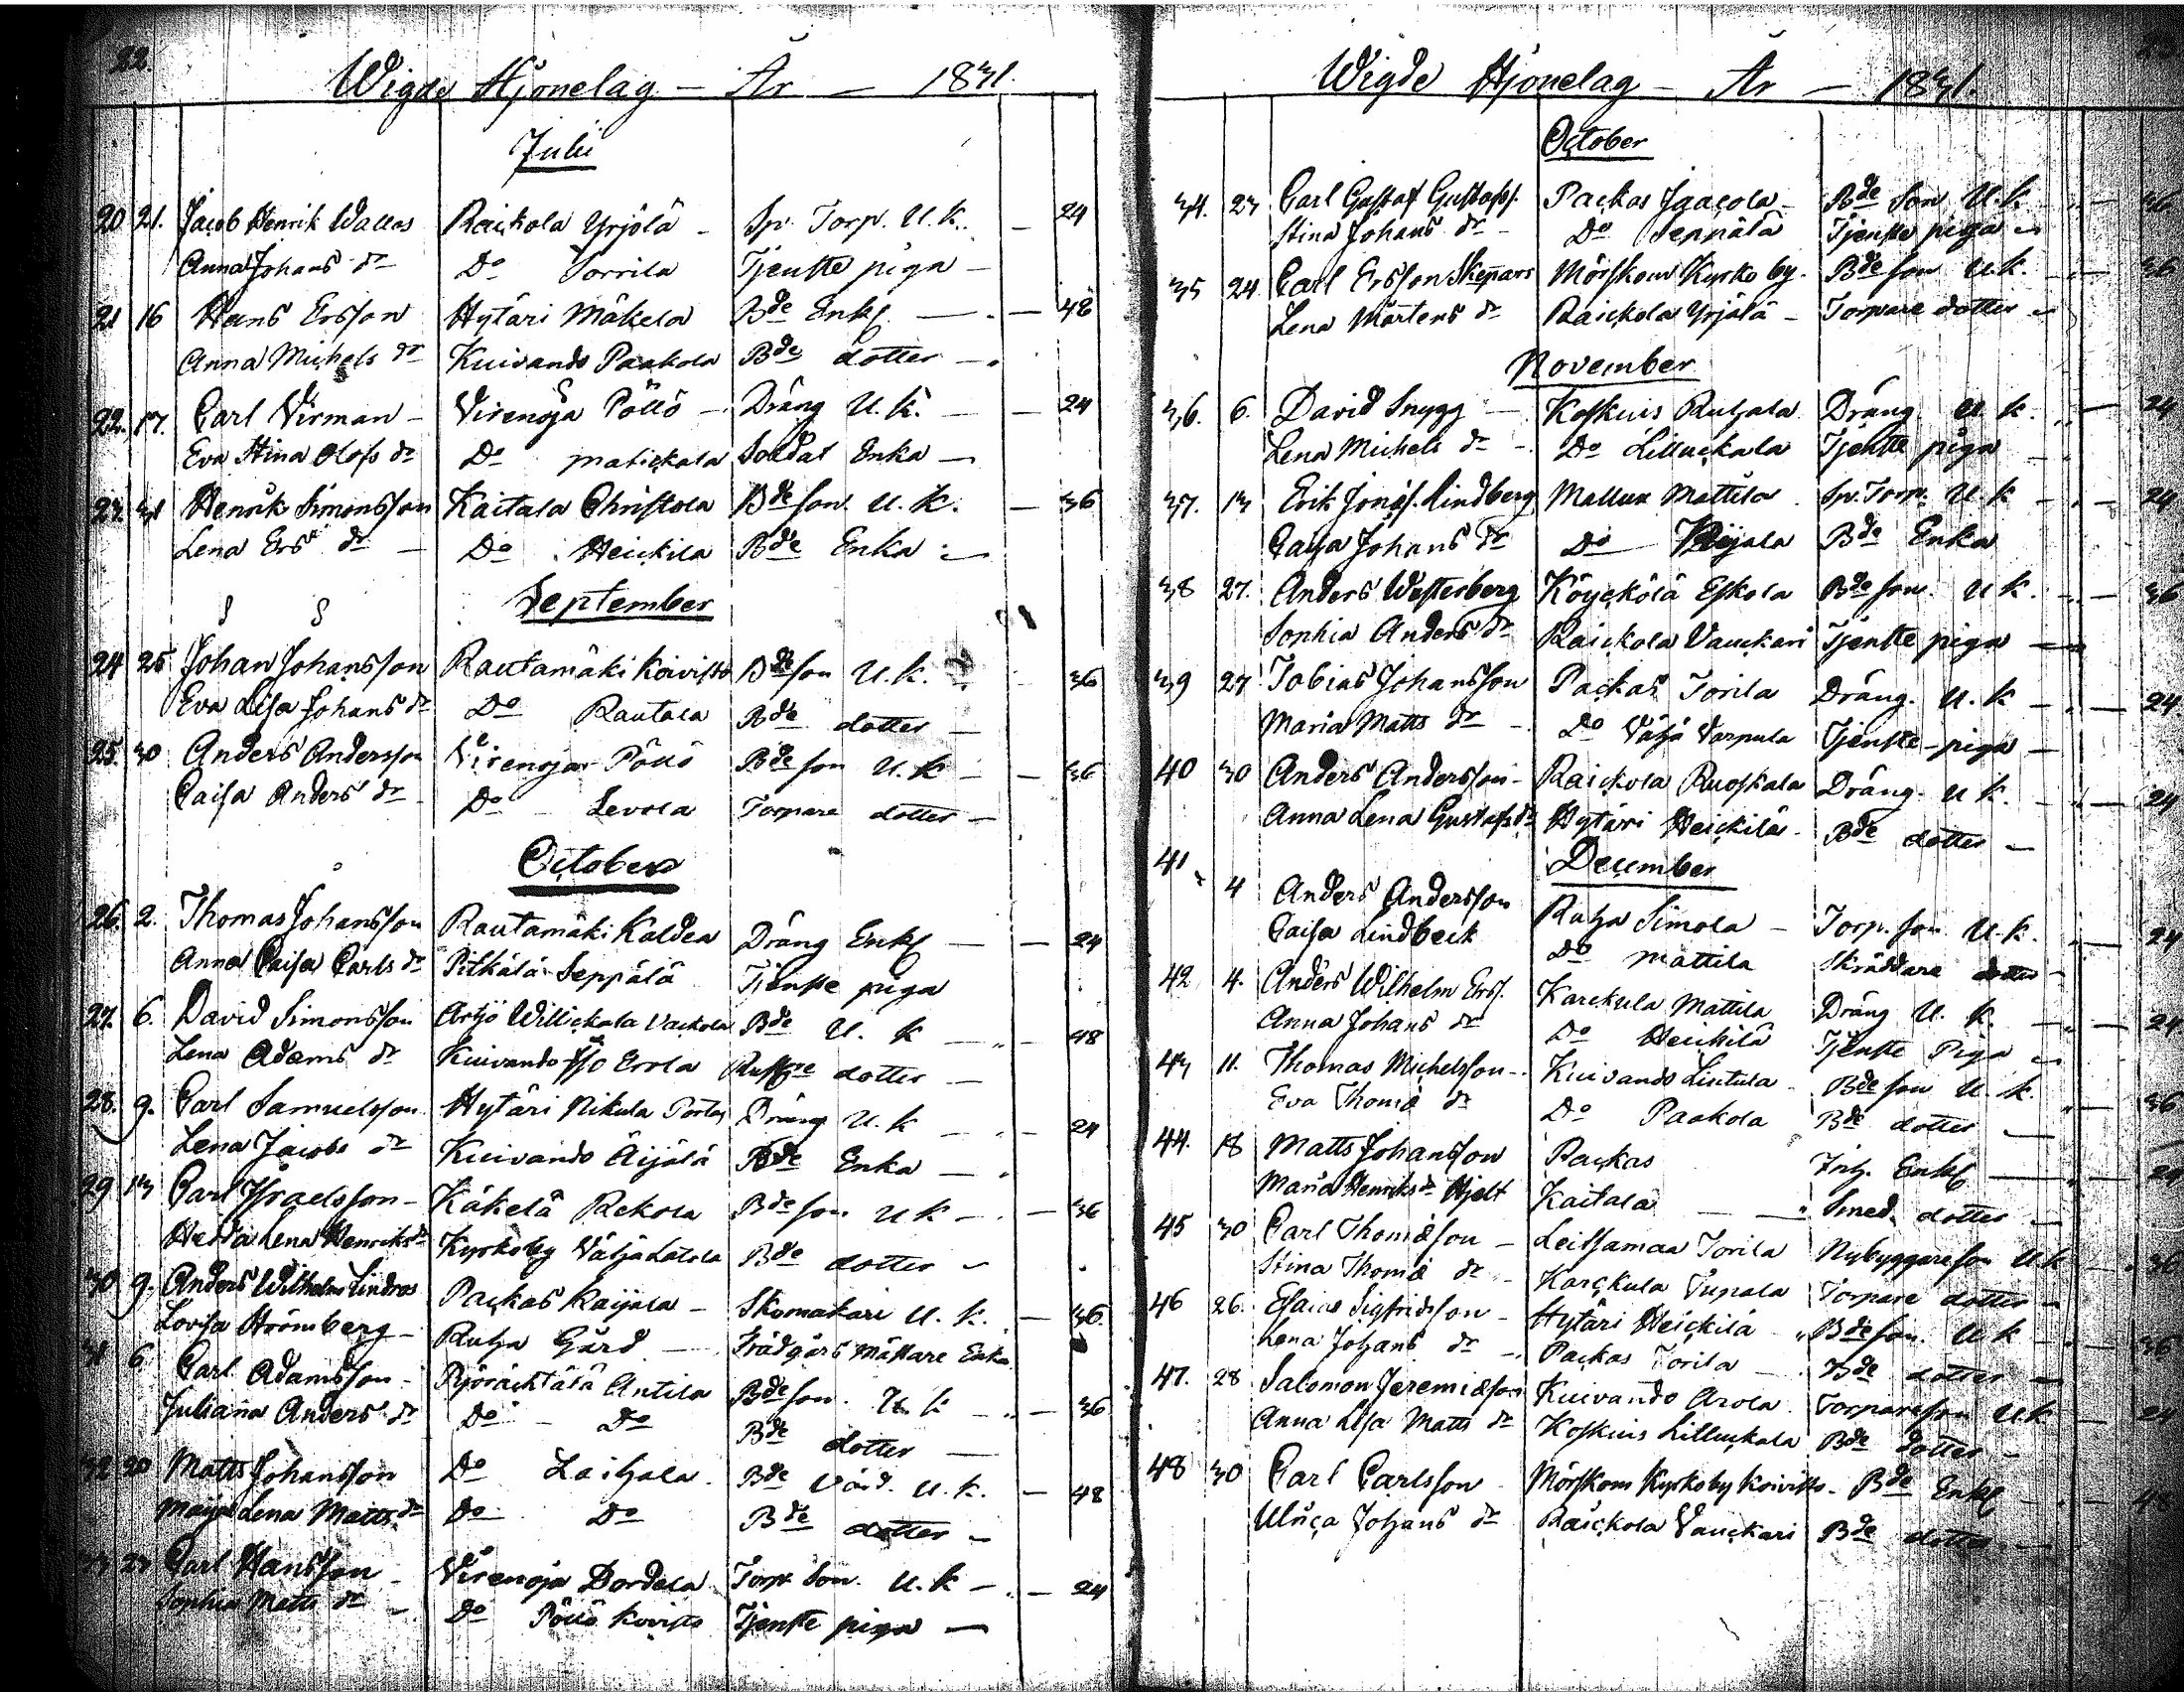 22.
Wigde Hjonelag – År – 1831.
Julii
20 21. Jacob Henrik Wallas Raickola Yrjölä – Sp. Torp. U. k. – 24
Anna Johans dr Do Sorrila Tjenste piga –
21 16 Hans Ersson Hytäri Mäkelä Bde Enkl – – 48
Anna Michels dr Kuivando Paakola Bde dotter –
22. 17. Carl Virman – Virenoja Pöllö – Dräng U. k. – – 24
Eva Stina Olofs dr Do Matickala Soldat Enka –
23. 31 Henrik Simonsson Kaitala Christola Bde son U. k. – 36
Lena Ers dr – Do Heickila Bde Enka –
September
24 25 Johan Johansson Rautamäki Koivisto Bde son U. k. – 36
Eva Lisa Johans dr Do Rautala Bde dotter –
25. 30 Anders Andersson Virenoja Pöllö Bde son U. k – – 36
Caisa Anders dr – Do – Levola Torpare dotter –
October
26. 2. Thomas Johansson Rautamäki Kaldea Dräng Enkl – – 24
Anna Caisa Carls dr Pitkälä Seppälä Tjenste piga
27. 6. David Simonsson Artjö Willickala Vackola Bde U. k – 48
Lena Adams dr Kuivando Iso Errola dotter –
28. 9. Carl Samuelsson Hytäri Nikula Dräng U. k – – 24
Lena Jacobs dr Kuivando Äijälä Bde Enka –
29 13 Carl Israelsson – Käkelä Rekola Bde son U k – – 36
Hedda Lena Henriks dr Kyrkoby Väljä Latola Bde dotter –
30 9. Anders Wilhelm Lindros Packas Raijala – Skomakare U. k. – 36.
Lovisa Strömberg – Ratja Gård – Trädgårs Mästare Enka
31 6 Carl Adamsson – Pyöräehtälä Antila Bde son. U. k – – 36
Juliana Anders dr Do – Do Bde dotter –
32 30 Matts Johansson Do Laitjala. Bde Värd. U. k. – 48
Maija Lena Matts dr Do Do Bde dotter –
33 23 Carl Hansson – Virenoja Dordela Torp. Son. U. k – – 24
Sophia Matts dr – Do Pöllö Kovisto Tjenste piga –
Wigde Hjonelag – År – 1831.
October
34. 23 Carl Gustaf Gustafss. Packas Jaacola – Bde Son U. k – 36
Stina Johans dr – Do Seppälä Tjenste piga –
35 24. Carl Ersson Skeppars Mörskom Kyrko by. Bde son U. k. – 36
Lena Mårtens dr Raickola Yrjölä – Torpare dotter –
November
36. 6. David Snygg – Koskuis Ratjala Dräng. U. k. – 24
Lena Michels dr – Do Lilluckala Tjenste piga –
37. 13 Erik Jonas. Lindberg Mallux Mattila. Sp. Torp. U. k – 24
Cajsa Johans dr Do Reijala Bde Enka
38 27. Anders Westerberg Köyckölä Eskola Bde son. U. k. – 36
Sophia Anders dr Raickola Vauckari Tjenste piga –
39 27 Tobias Johansson Packas Torila Dräng. U. k – 24
Maria Matts dr – Do Väljä Varpula Tjenste-piga –
40 30 Anders Andersson – Raickola Ruoskala Dräng. U k. – 24
Anna Lena Gustafs dr Hytäri Heickilä – Bde dotter –
December
41 4 Anders Andersson Ratja Simola – Torp. son U. k. – 24
Caisa Lindbeck Do Mattila Skräddare dotter –
42 4. Anders Wilhelm Erss. Karckula Mattila Dräng U. k. – 24
Anna Johans dr Do Heickilä Tjenste Piga –
43 11. Thomas Michelsson – Kuivando Lintula – Bde son U. k. 36
Eva Thomæ dr Do Paakola Bde dotter –
44. 18 Matts Johansson Packas Inh. Enkl – 24
Maria Henriks dr Hjelt Kaitala – – Smed. dotter –
45 30 Carl Thomæson – Leitsamaa Torila Nybyggare son U k – 36
Stina Thomæ dr – Karckula Tupala Torpare dotter –
46 26. Esaias Sigfridsson – Hytäri Heickilä – Bde son. U k – 36
Lena Johans dr – Packas Torila – Bde dotter –
47. 28 Salomon Jeremiæson Kuivando Arola. Torpareson U k – 24
Anna Lisa Matts dr Koskuis Lilluckala Bde dotter –
48 30 Carl Carlsson – Mörskom Kyrkoby Koivisto – Bde Enkl – 48
Ulrica Johans dr Raickola Vauckari Bde dotter –